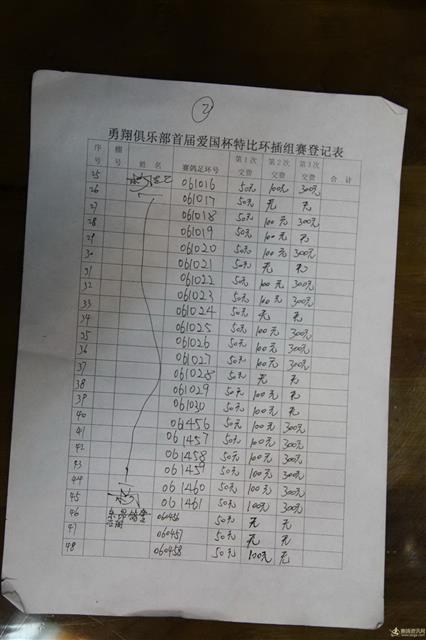 2
勇翔俱乐部首届爱国杯特比环插组赛登记表
序号 棚号 姓名 赛鸽足环号 第1次交费 第2次交费 第3次交费 合计
25 061016 50元 100元 300元
26 061017 50元 无 无
27 061018 50元 100元 300元
28 061019 50元 100元 无
29 061020 50元 100元 300元
30 061021 50元 无 无
31 061022 50元 100元 300元
32 061023 50元 100元 300元
33 061024 50元 无 无
34 061025 50元 100元 300元
35 061026 50元 100元 300元
36 061027 50元 100元 300元
37 061028 50元 无 无
38 061029 50元 100元 无
39 061030 50元 100元 300元
40 061456 50元 100元 300元
41 061457 50元 100元 300元
42 061458 50元 100元 300元
43 061459 50元 100元 300元
44 061460 50元 100元 300元
45 061461 50元 100元 300元
46 060456 50元 无 无
47 060457 50元 无 无
48 060458 50元 100元 无